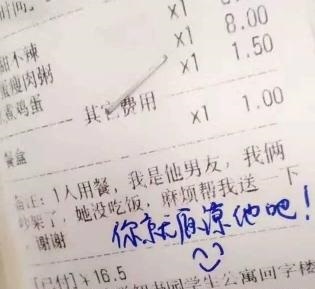 时间:
x1
甜不辣 x1 8.00
蛋瘦肉粥 x1 1.50
煮鸡蛋
其它费用 x1 1.00
餐盒
备注: 1人用餐, 我是他男友, 我俩
吵架了, 她没吃饭, 麻烦帮我送一下
, 谢谢
你就原谅他吧!
[已付]¥16.5
学生公寓回字楼